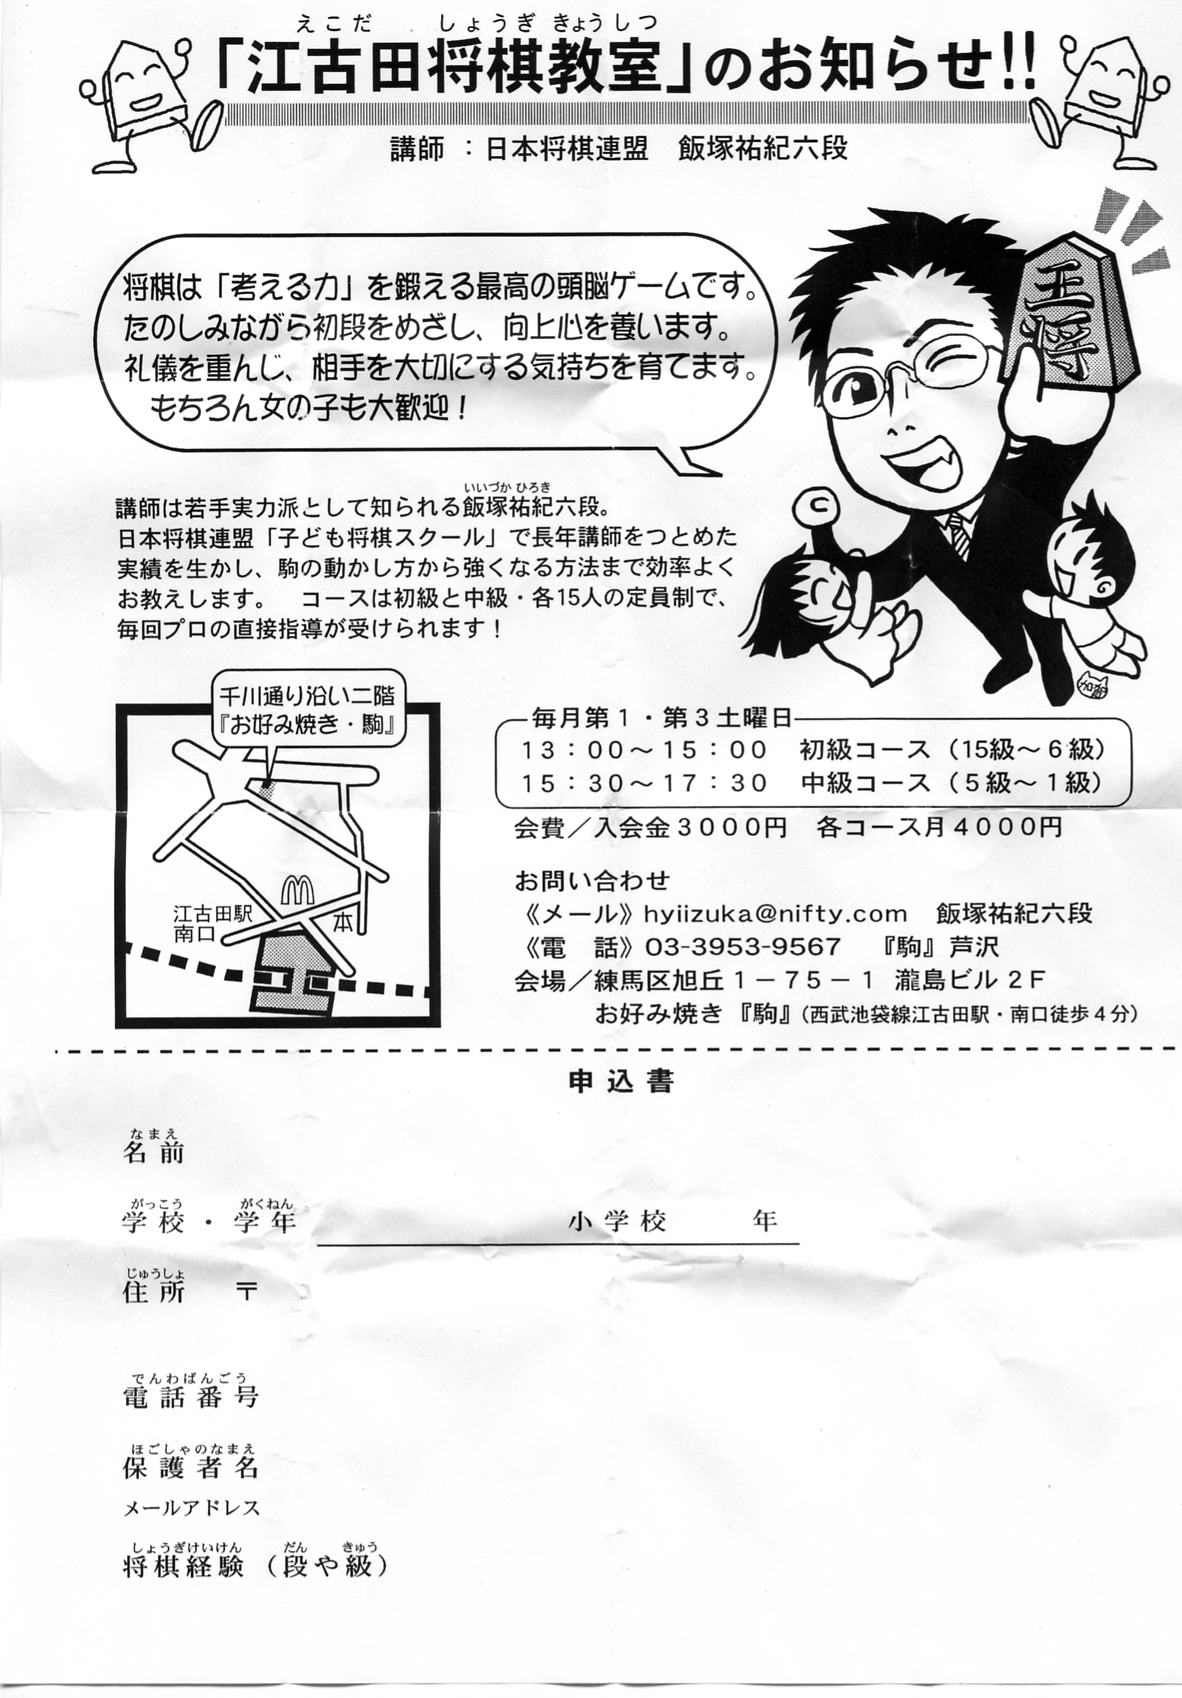 えこだ しょうぎ きょうしつ
「江古田将棋教室」のお知らせ!!
講師 ： 日本将棋連盟　飯塚祐紀六段
王将
将棋は「考える力」を鍛える最高の頭脳ゲームです。
たのしみながら初段をめざし、向上心を養います。
礼儀を重んじ、相手を大切にする気持ちを育てます。
もちろん女の子も大歓迎！
いいづか ひろき
講師は若手実力派として知られる飯塚祐紀六段。
日本将棋連盟「子ども将棋スクール」で長年講師をつとめた
実績を生かし、駒の動かし方から強くなる方法まで効率よく
お教えします。　コースは初級と中級・各15人の定員制で、
毎回プロの直接指導が受けられます！
千川通り沿い二階
『お好み焼き・駒』
江古田駅
南口
本
毎月第１・第３土曜日
１３：００～１５：００　初級コース（15級～６級）
１５：３０～１７：３０　中級コース（５級～１級）
会費／入会金３０００円　各コース月４０００円
お問い合わせ
《メール》hyiizuka@nifty.com　飯塚祐紀六段
《電　話》03-3953-9567　『駒』芦沢
会場／練馬区旭丘１－７５－１　瀧島ビル２Ｆ
お好み焼き『駒』（西武池袋線江古田駅・南口徒歩４分）
申込書
なまえ
名前
がっこう　がくねん
学校・学年　小学校　年
じゅうしょ
住所　〒
でんわばんごう
電話番号
ほごしゃのなまえ
保護者名
メールアドレス
しょうぎけいけん　だん　きゅう
将棋経験（段や級）